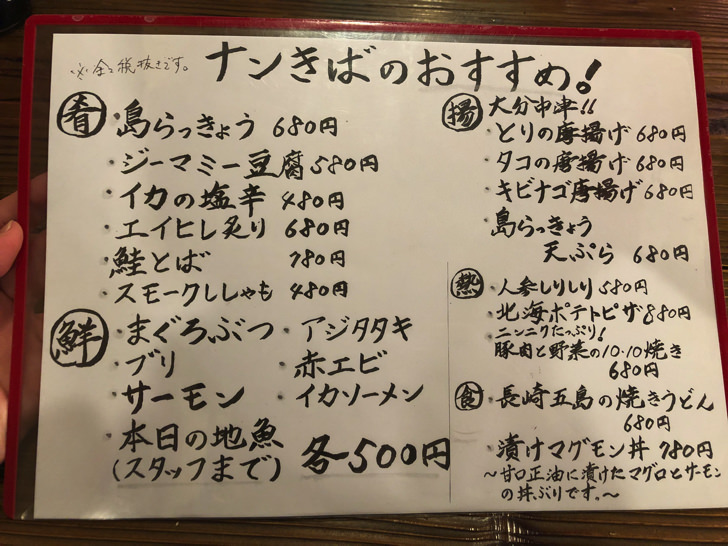 ※全て税抜きです。
ナンきばのおすすめ!
肴
・島らっきょう 680円
・ジーマミー豆腐 580円
・イカの塩辛 480円
・エイヒレ炙り 680円
・鮭とば 780円
・スモークししゃも 480円
鮮
・まぐろぶつ ・アジタタキ
・ブリ ・赤エビ
・サーモン ・イカソーメン
・本日の地魚
(スタッフまで) 各500円
揚
大分中津!!
・とりの唐揚げ 680円
・タコの唐揚げ 680円
・キビナゴ唐揚げ 680円
・島らっきょう
天ぷら 680円
熱
・人参しりしり 580円
・北海ポテトピザ 880円
・ニンニクたっぷり!
豚肉と野菜の10.10焼き
680円
食
・長崎五島の焼きうどん
680円
・漬けマグモン丼 780円
～甘口正油に漬けたマグロとサーモン
の丼ぶりです。～